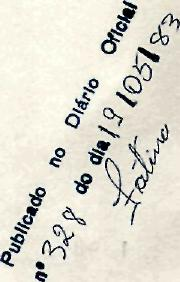 Publicado no Diário Oficial
nº 328 do dia 19/05/83